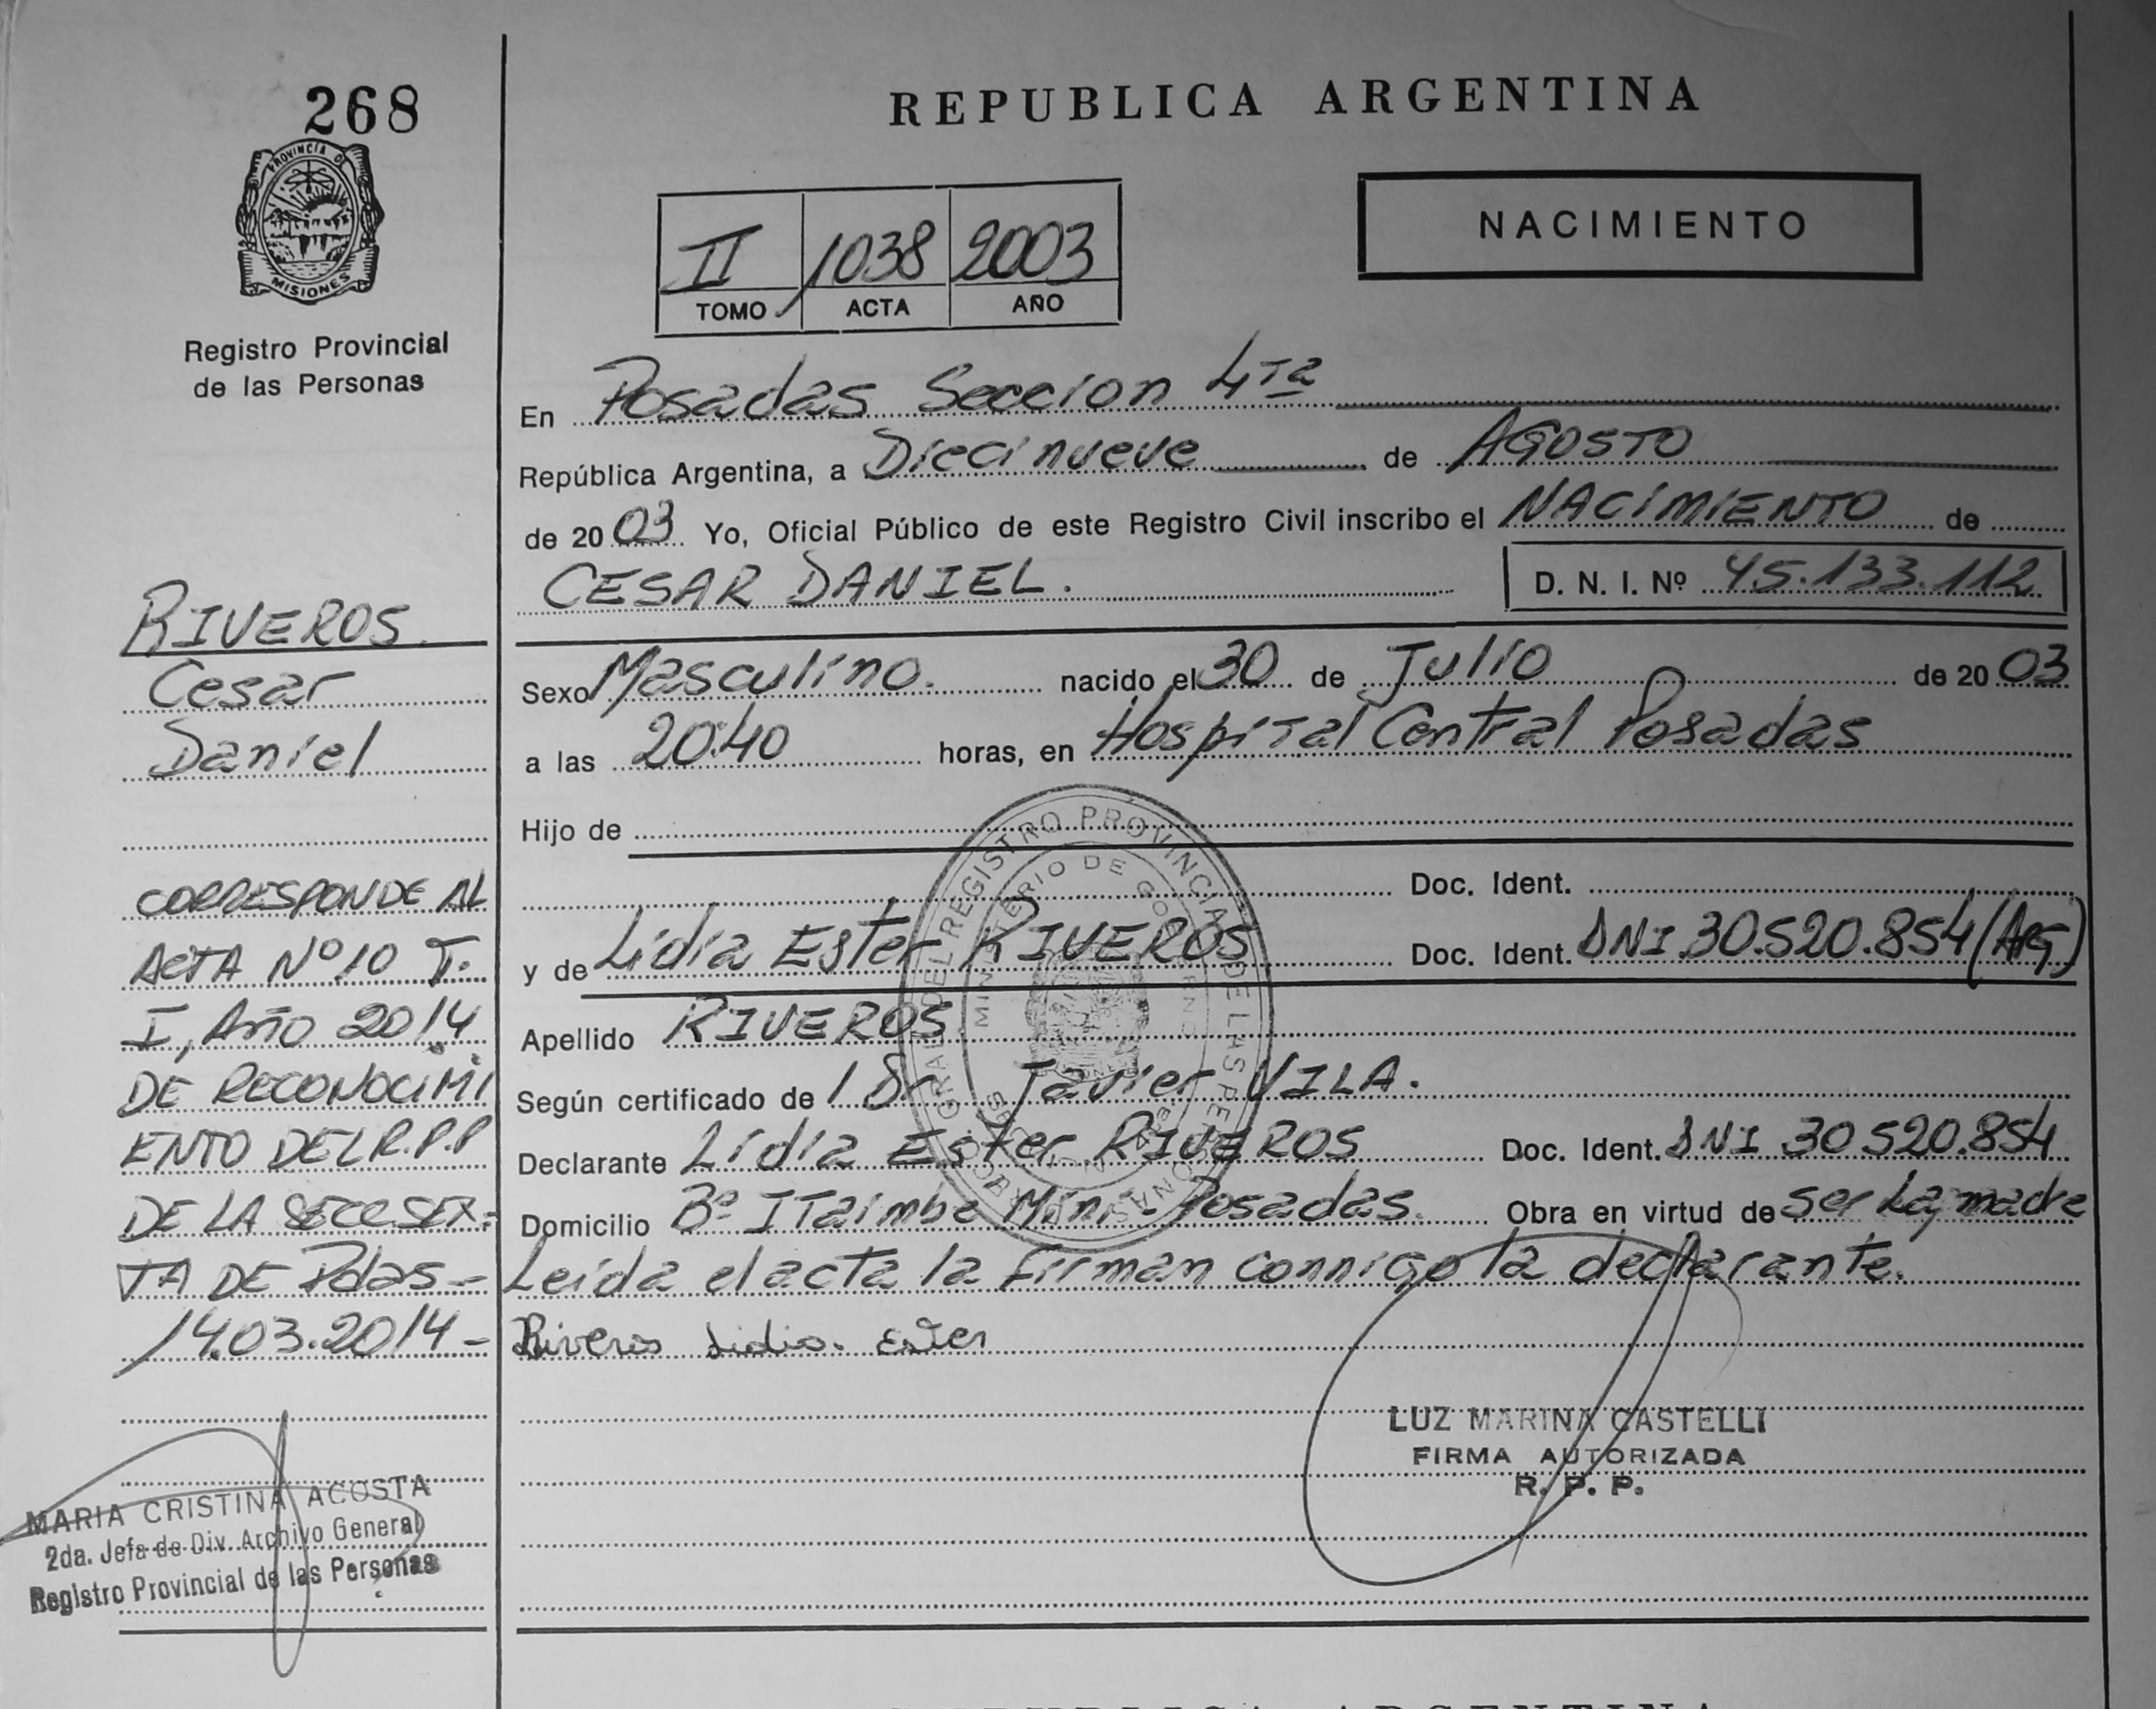 268
PROVINCIA D
MISIONES
Registro Provincial
de las Personas
RIVEROS.
Cesar
Daniel
CORRESPONDE AL
ACTA Nº 10 T.
I, Año 2014
DE RECONOCIMI
ENTO DEL R.P.P
DE LA SECC SEX-
TA DE Pdas-
14.03.2014-
MARIA CRISTINA ACOSTA
2da. Jefa de Div. Archivo General
Registro Provincial de las Personas
REPUBLICA ARGENTINA
NACIMIENTO
II 1038 2003
TOMO ACTA AÑO
En Posadas Seccion 4ta
República Argentina, a Diecinueve de AGOSTO
de 2003 Yo, Oficial Público de este Registro Civil inscribo el NACIMIENTO de
CESAR DANIEL. D. N. I. Nº 45.133.112
Sexo Masculino. nacido el 30 de Julio de 2003
a las 20:40 horas, en Hospital Central Posadas
Hijo de
Doc. Ident.
y de Lidia Ester RIVEROS Doc. Ident. DNI 30.520.854 (ARG)
Apellido RIVEROS
Según certificado de l Dr Javier VILA.
Declarante Lidia Ester RIVEROS Doc. Ident. DNI 30.520.854
Domicilio Bº ITaimbe Mini - Posadas. Obra en virtud de ser La madre
Leida el acta la firman conmigo la declarante.
Riveros Lidia. Ester
LUZ MARINA CASTELLI
FIRMA AUTORIZADA
R. P. P.
REGISTRO PROVINCIAL DE LAS PERSONAS
MINISTERIO DE GOBIERNO
REPUBLICA ARGENTINA